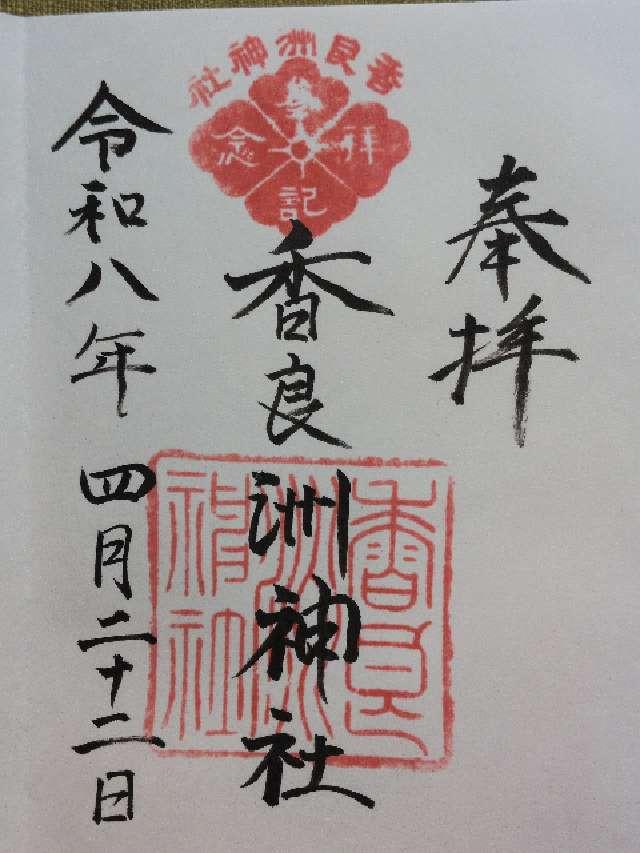 奉拝
香良洲神社
奉拝記念
香良洲神社
香良洲神社
令和八年四月二十二日